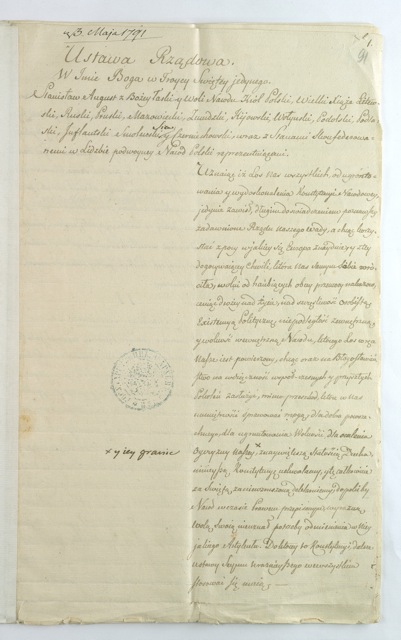 3. Maja 1791
Ustawa Rządowa.
W Imie Boga w Troycy Swiętey jedynego.
Stanisław August z Bożey Łaski y Woli Narodu Król Polski, Wielki Xiąże Litew-
ski, Ruski, Pruski, Mazowiecki, Żmudzki, Kijowski, Wołyński, Podolski, Podla-
ski, Jnflantski Smoleński, Siewierski y Czerniechowski, wraz z Stanami Skonfederowa-
nemi w Liczbie podwoyney Naród Polski reprezentuiącemi.
Uznaiąc iż los nas wszystkich od ugrunto-
wania y wydoskonalenia Konstytucyi Narodowey
jedynie zawisł, długim doświadczeniem poznawszy
zadawnione Rządu naszego Wady, a chcąc korzy-
stać z pory w jakiey się Europa znayduie y z tey
dogorywaiącey chwili, która nas samym sobie wró-
ciła, wolni od hańbiących obcey przemocy nakazow,
ceniąc drożey nad życie, nad szczęśliwość osobistą
Existencyą Polityczną, niepodległość zewnętrzną
y wolność wewnętrzną Narodu, którego los w ręce
nasze iest powierzony, chcąc oraz na Błogosławień-
stwo na wdzięczność współczesnych y przyszłych
Pokoleń zasłużyć, mimo przeszkod, które w nas
namiętności sprawować mogą, dla dobra powsze-
chnego, dla ugruntowania Wolności, dla ocalenia
Oyczyzny naszey x z naywiększą stałością Ducha
x y iey granic
ninieyszą Konstytucyę uchwalamy, y tę całkowicie
za Swiętą, za niewzruszoną deklaruiemy, dopókiby
Naród w czasie Prawem przepisanym, wyraźną
wolą Swoią nieuznał potrzeby odmienienia w niey
jakiego Artykułu. Do którey to Konstytucyi dalsze
ustawy Seymu teraźnieyszego we wszystkim
stosować się maią. —